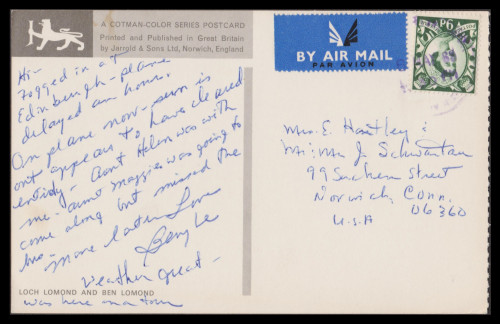 A COTMAN-COLOR SERIES POSTCARD
Printed and Published in Great Britain
by Jarrold & Sons Ltd, Norwich, England
Hi-
Fogged in at
Edinburgh - plane
delayed an hour.
On plane now - seem is
ont appear to have cleared
entirely - Aunt Helen was with
me - Aunt Maggie was going to
come along but missed the
bus -
More later Love
Weather great -
LOCH LOMOND AND BEN LOMOND
was here on a tour
BY AIR MAIL
PAR AVION
9P
Mrs. E. Hartley &
Mr. & Mrs J. Schwartau
99 Sachem Street
Norwich Conn.
06360
U.S.A